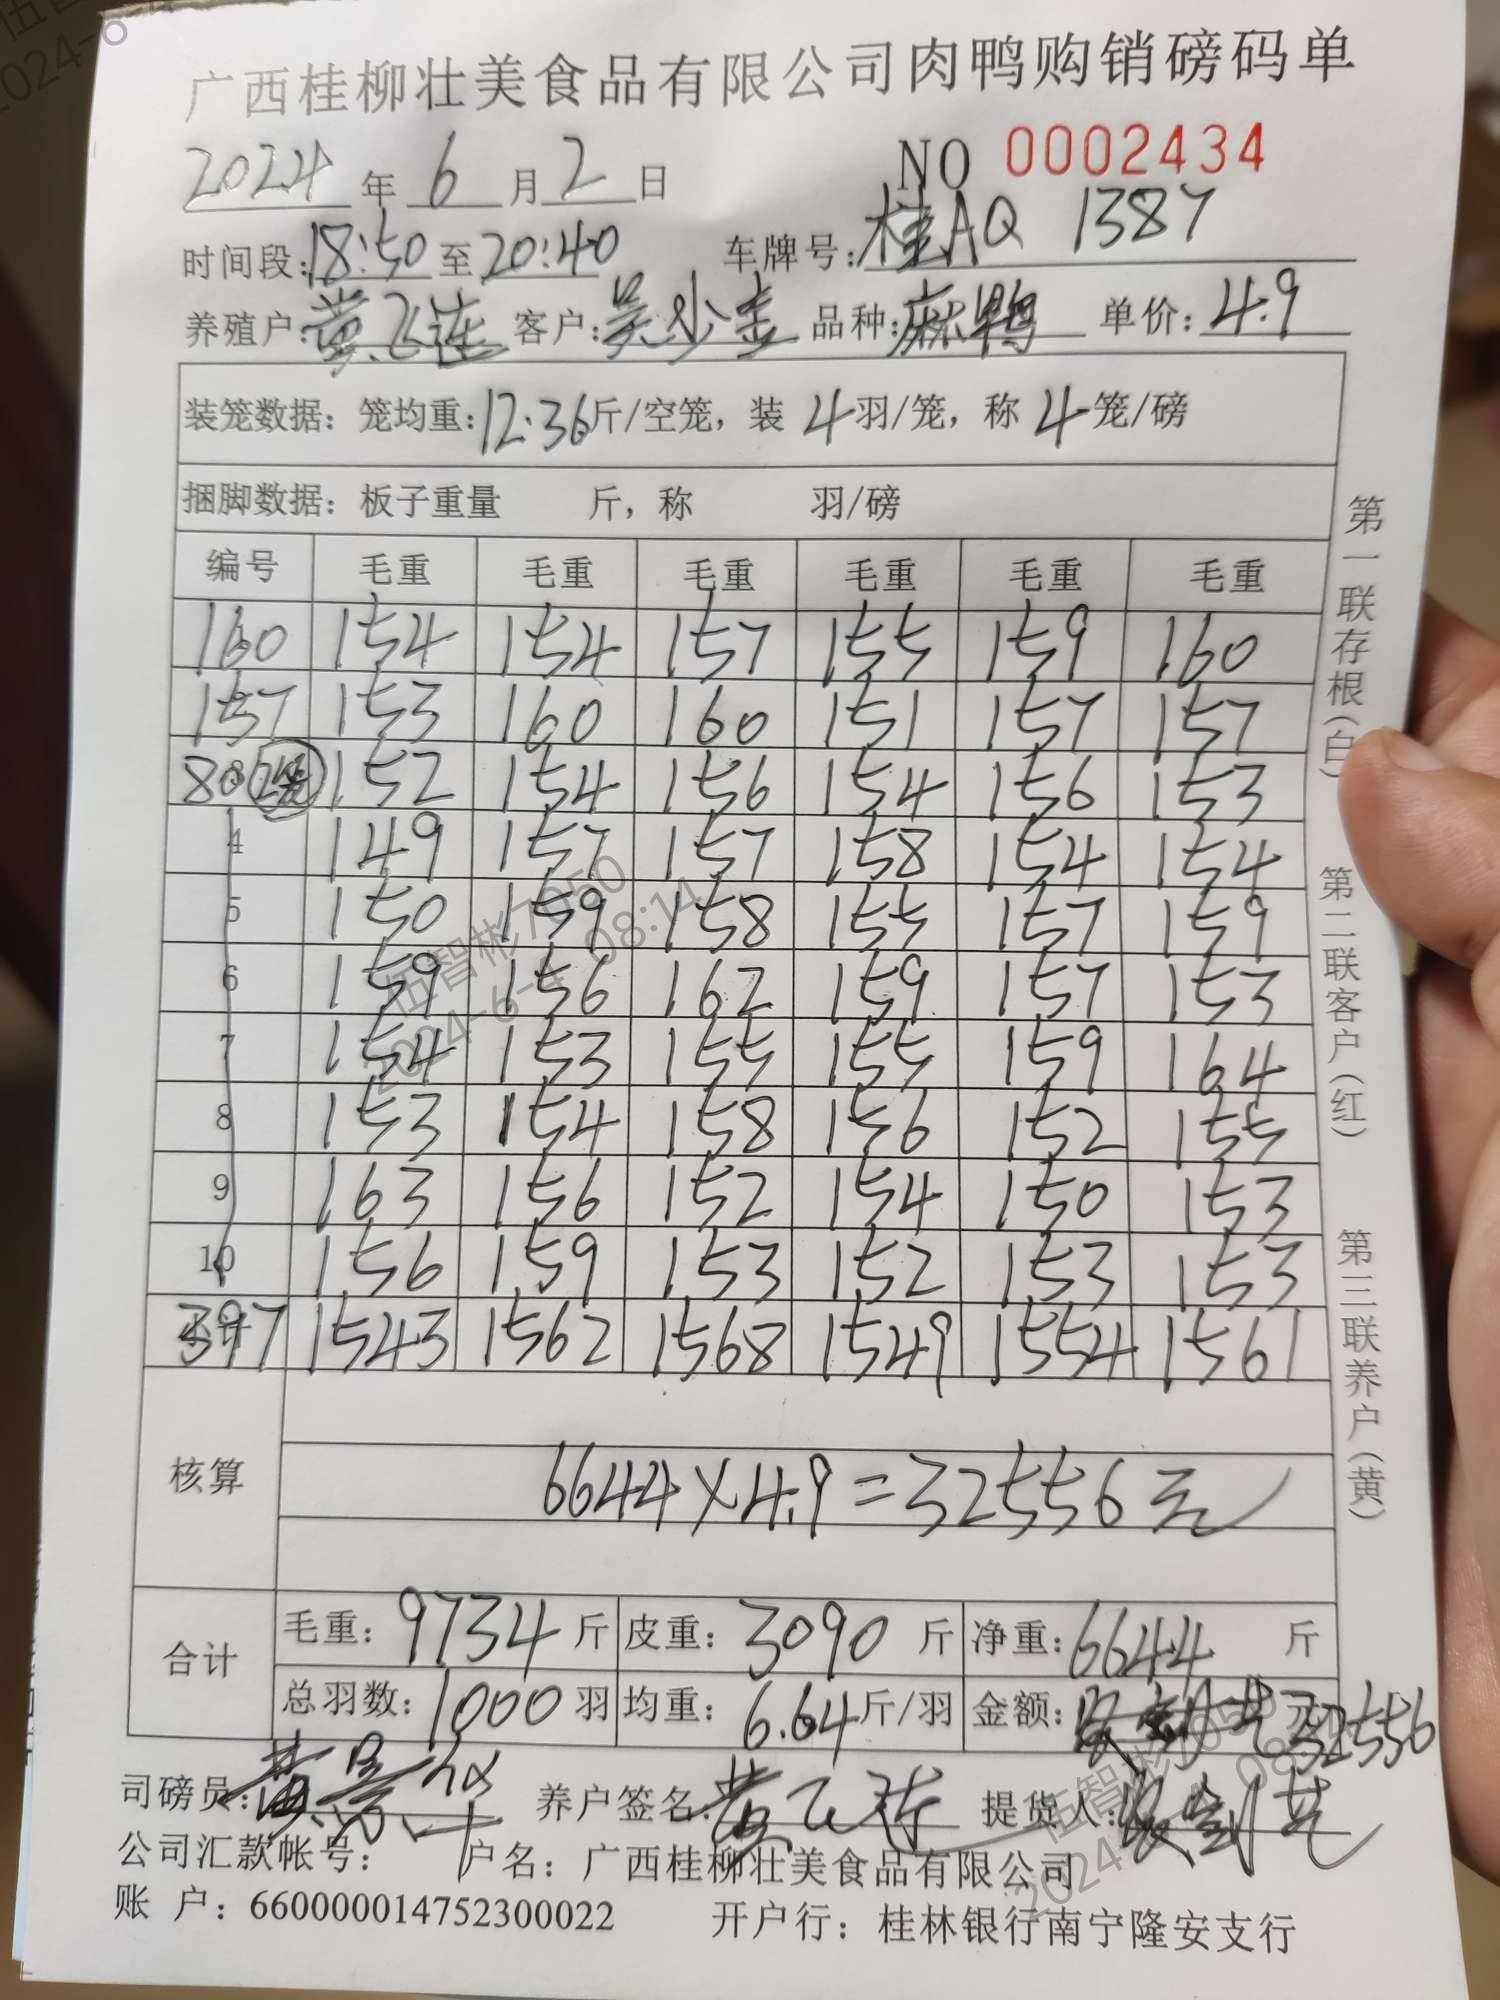 广西桂柳壮美食品有限公司肉鸭购销磅码单
2024年6月2日 NO 0002434
时间段:18:50至20:40 车牌号:桂AQ 1387
养殖户:黄飞莲 客户:吴少金 品种:麻鸭 单价:4.9
装笼数据:笼均重:12.36斤/空笼,装 4羽/笼,称 4笼/磅
捆脚数据:板子重量 斤,称 羽/磅
编号 毛重 毛重 毛重 毛重 毛重 毛重
160 154 154 157 155 159 160
157 153 160 160 151 157 157
80 2笼 152 154 156 154 156 153
4 149 157 157 158 154 154
5 150 159 158 155 157 159
6 159 156 162 159 157 153
7 154 153 155 155 159 164
8 153 154 158 156 152 155
9 163 156 152 154 150 153
10 156 159 153 152 153 153
397 1543 1562 1568 1549 1554 1561
核算 6644×4.9=32556元
合计 毛重:9734斤 皮重:3090斤 净重:6644斤
总羽数:1000羽 均重:6.64斤/羽 金额:元32556
司磅员: 养户签名:黄飞莲 提货人:
公司汇款帐号: 户名:广西桂柳壮美食品有限公司
账 户:660000014752300022 开户行:桂林银行南宁隆安支行
第一联存根(白) 第二联客户(红) 第三联养户(黄)
伍智彬7050
2024-6-4 08:14